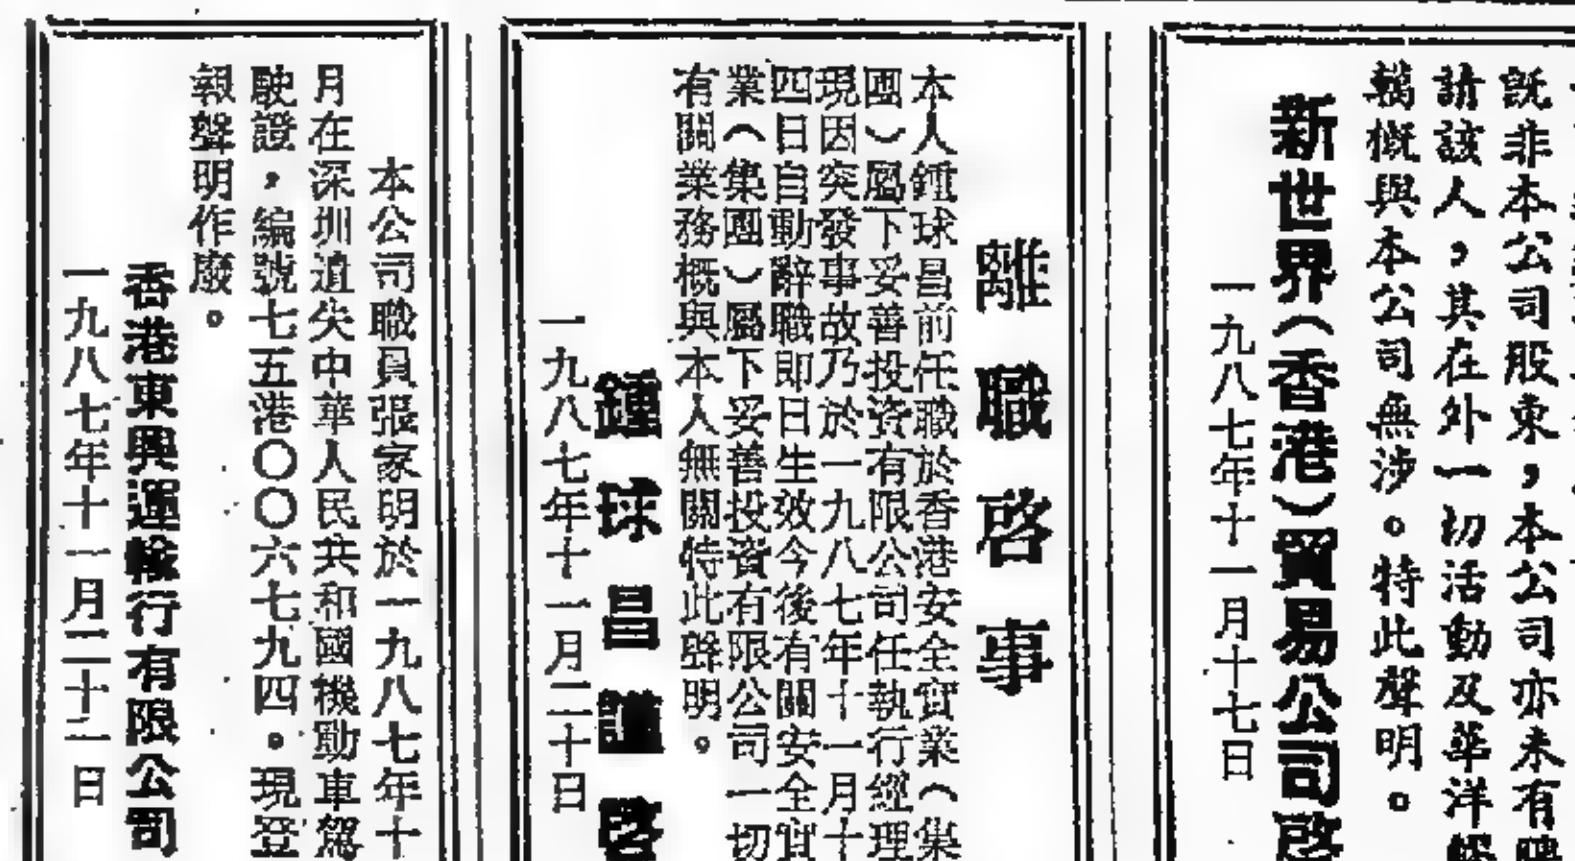 既非本公司股東，本公司亦未有
請該人，其在外一切活動及華洋
轇轕概與本公司無涉。特此聲明。
新世界（香港）貿易公司啓
一九八七年十一月十七日
離職啓事
本人鍾球昌前任職於香港安全實業（集
團）屬下妥善投資有限公司任執行經理
現因突發事故乃於一九八七年十一月十
四日自動辭職即日生效今後有關安全實
業（集團）屬下妥善投資有限公司一切
有關業務概與本人無關特此聲明。
鍾球昌謹啓
一九八七年十一月二十日
本公司職員張家明於一九八七年十
月在深圳遺失中華人民共和國機動車駕
駛證，編號七五港〇〇六七九四。現登
報聲明作廢。
香港東興運輸行有限公司
一九八七年十一月二十二日